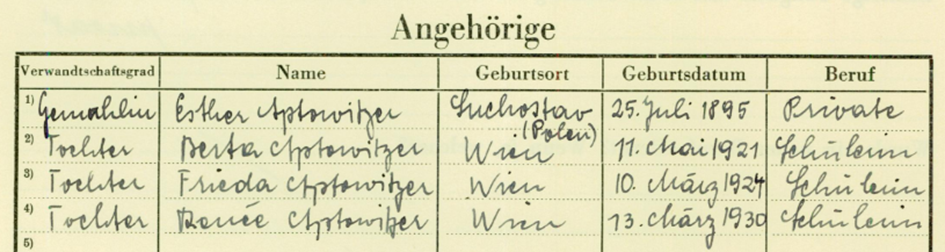 Angehörige
Verwandtschaftsgrad Name Geburtsort Geburtsdatum Beruf
1) Gemahlin Esther Aptowitzer Suchostaw (Polen) 25. Juli 1895 Private
2) Tochter Berta Aptowitzer Wien 11. Mai 1921 Schülerin
3) Tochter Frieda Aptowitzer Wien 10. März 1924 Schülerin
4) Tochter Renée Aptowitzer Wien 13. März 1930 Schülerin
5)